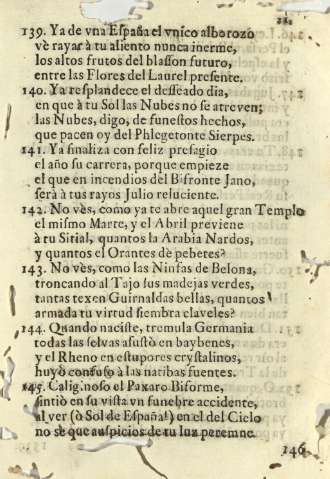 139. Ya de vna España el vnico alborozo
vè rayar à tu aliento nunca inerme,
los altos frutos del blasson futuro,
entre las Flores del Laurel presente.
140. Ya resplandece el desseado dia,
en que à tu Sol las Nubes no se atreven;
las Nubes, digo, de funestos hechos,
que pacen oy del Phlegetonte Sierpes.
141. Ya finaliza con feliz presagio
el año su carrera, porque empieze
el que en incendios del Bifronte Jano,
serà à tus rayos Julio reluciente.
142. No vès, como ya te abre aquel gran Templo
el mismo Marte, y el Abril previene
à tu Sitial, quantos la Arabia Nardos,
y quantos el Orantes dè pebetes?
143. No vès, como las Ninfas de Belona,
troncando al Tajo sus madejas verdes,
tantas texen Guirnaldas bellas, quantos
armada tu virtud siembra claveles?
144. Quando naciste, tremula Germania
todas las selvas asustò en baybenes,
y el Rheno en estupores crystalinos,
huyò confuso à las natibas fuentes.
145. Calig.noso el Paxaro Biforme,
sintiò en su vista vn funebre accidente,
al ver (ò Sol de España!) en el del Cielo
no se que auspicios de tu luz peremne.
146